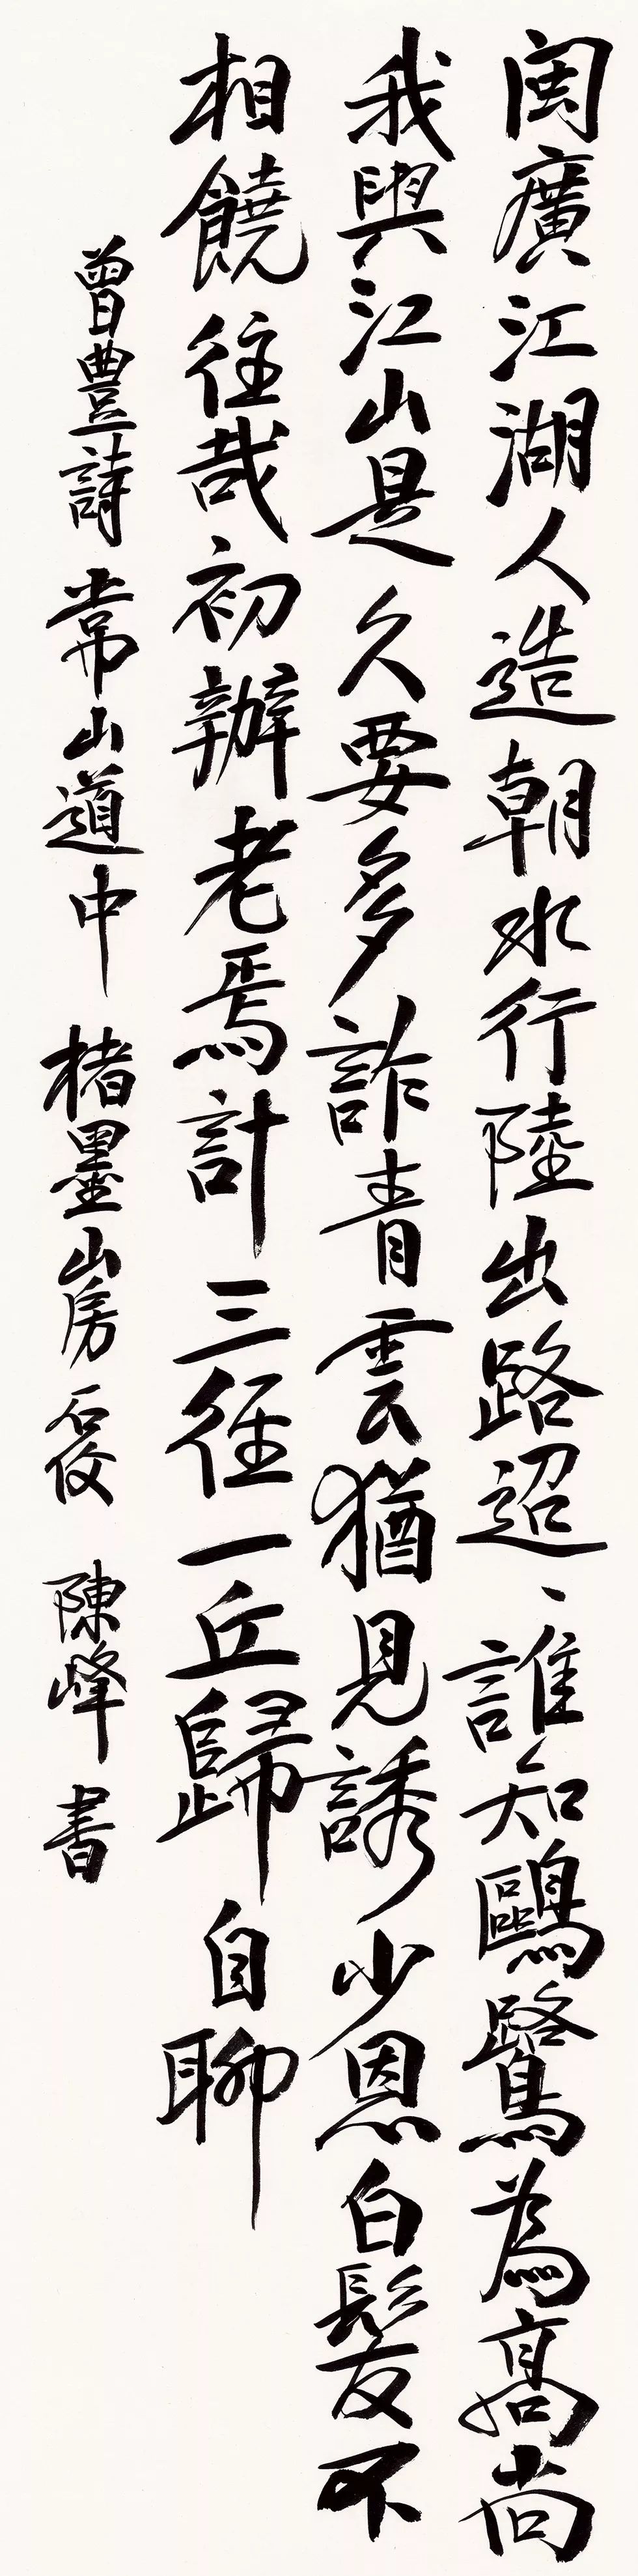 閩廣江湖人造朝水行陸出路迢、誰知鷗鷺為高尚
我與江山是久要多詐青雲猶見誘少恩白髮不
相饒往哉初辦老焉計三徑一丘歸自聊
曾豊詩 常山道中 楮墨山房 石佼 陳峰 書